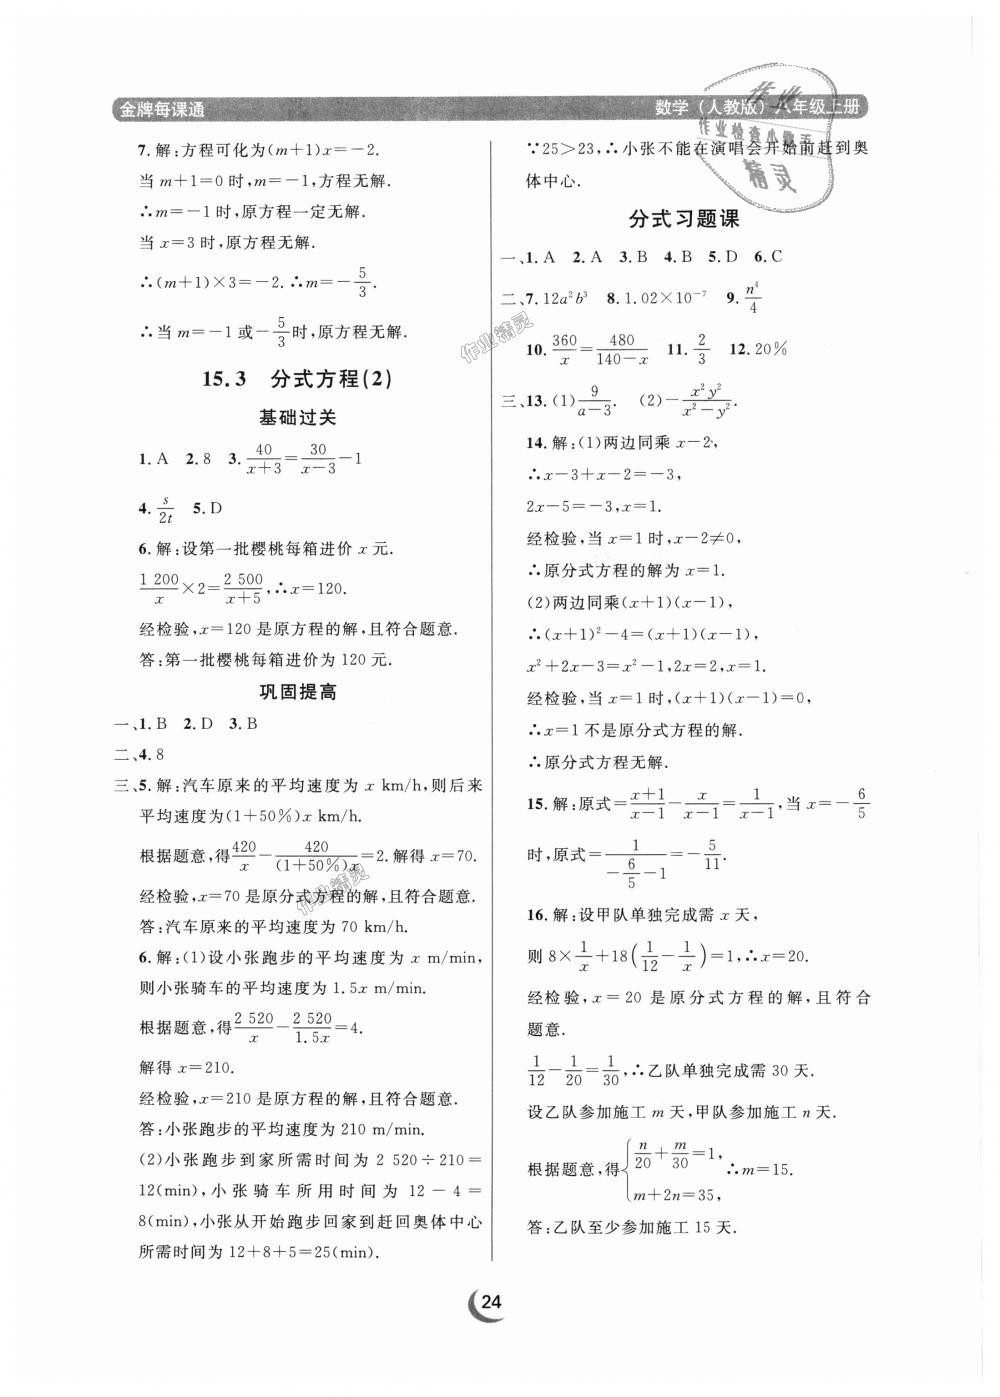 金牌每课通
数学（人教版）八年级上册
7.解:方程可化为(m+1)x=-2.
当 m+1=0 时,m=-1,方程无解.
∴m=-1 时,原方程一定无解.
当 x=3 时,原方程无解.
∴(m+1)×3=-2.∴m=-5/3.
∴当 m=-1 或-5/3时,原方程无解.
15.3 分式方程(2)
基础过关
1.A 2.8 3.40/(x+3)=30/(x-3)-1
4.s/2t 5.D
6.解:设第一批樱桃每箱进价 x 元.
1 200/x×2=2 500/(x+5),∴x=120.
经检验,x=120 是原方程的解,且符合题意.
答:第一批樱桃每箱进价为 120 元.
巩固提高
一、1.B 2.D 3.B
二、4.8
三、5.解:汽车原来的平均速度为 x km/h,则后来
平均速度为(1+50%)x km/h.
根据题意,得420/x-420/(1+50%)x=2.解得 x=70.
经检验,x=70 是原分式方程的解,且符合题意.
答:汽车原来的平均速度为 70 km/h.
6.解:(1)设小张跑步的平均速度为 x m/min,
则小张骑车的平均速度为 1.5x m/min.
根据题意,得2 520/x-2 520/1.5x=4.
解得 x=210.
经检验,x=210 是原方程的解,且符合题意.
答:小张跑步的平均速度为 210 m/min.
(2)小张跑步到家所需时间为 2 520÷210=
12(min),小张骑车所用时间为 12-4=
8(min),小张从开始跑步回家到赶回奥体中心
所需时间为 12+8+5=25(min).
∵25>23,∴小张不能在演唱会开始前赶到奥
体中心.
分式习题课
一、1.A 2.A 3.B 4.B 5.D 6.C
二、7.12a²b³ 8.1.02×10⁻⁷ 9.n⁴/4
10.360/x=480/(140-x) 11.2/3 12.20%
三、13.(1)9/(a-3). (2)-x²y²/(x²-y²).
14.解:(1)两边同乘 x-2,
∴x-3+x-2=-3,
2x-5=-3,x=1.
经检验,当 x=1 时,x-2≠0,
∴原分式方程的解为 x=1.
(2)两边同乘(x+1)(x-1),
∴(x+1)²-4=(x+1)(x-1),
x²+2x-3=x²-1,2x=2,x=1.
经检验,当 x=1 时,(x+1)(x-1)=0,
∴x=1 不是原分式方程的解.
∴原分式方程无解.
15.解:原式=(x+1)/(x-1)-x/(x-1)=1/(x-1),当 x=-6/5
时,原式=1/(-6/5-1)=-5/11.
16.解:设甲队单独完成需 x 天,
则 8×1/x+18(1/12-1/x)=1,∴x=20.
经检验,x=20 是原分式方程的解,且符合
题意.
1/12-1/20=1/30,∴乙队单独完成需 30 天.
设乙队参加施工 m 天,甲队参加施工 n 天.
根据题意,得{n/20+m/30=1, m+2n=35, ∴m=15.
答:乙队至少参加施工 15 天.
24
作业
作业检查小助手
精灵
作业精灵
作业精灵